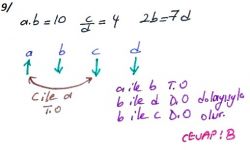 9/
a.b=10 c/d=4 2b=7d
a b c d
c ile a
T.O
a ile b T.O
b ile d D.O dolayısıyla
b ile c D.O olur.
CEVAP: B